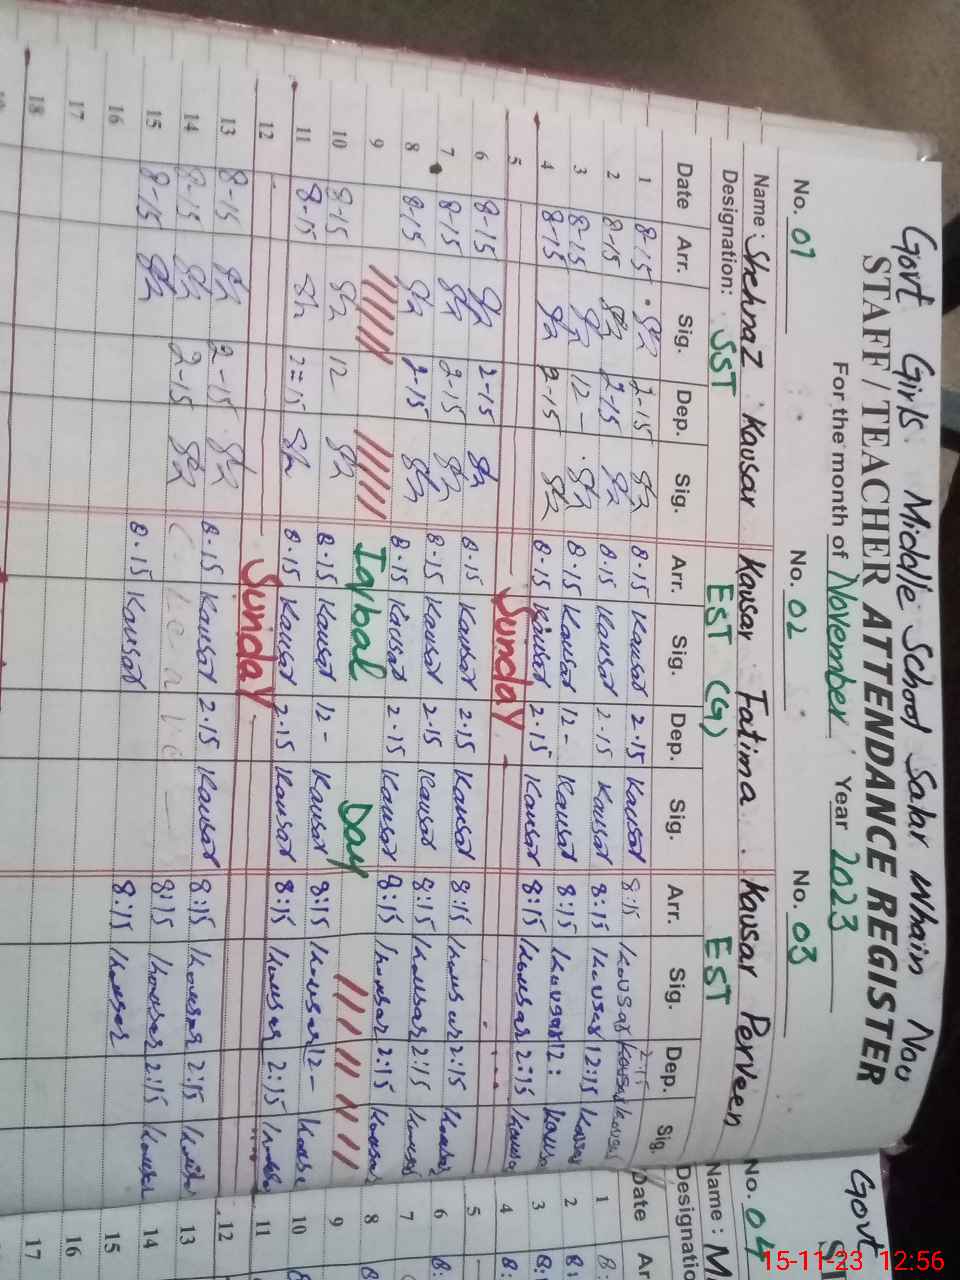 Govt Girls Middle School Sahar Whain Nau
STAFF / TEACHER ATTENDANCE REGISTER
For the month of November Year 2023
No. 01 No. 02 No. 03
Name: Shehnaz Kausar Kausar Fatima Kausar Perveen
Designation: SST EST (G) EST
Date Arr. Sig. Dep. Sig. Arr. Sig. Dep. Sig. Arr. Sig. Dep. Sig.
1 8-15 2-15 8.15 Kausar 2.15 Kausar 8:15 Kousar 2:15 Kousar
2 8-15 2-15 8.15 Kausar 2.15 Kausar 8:15 Kousar 12:15 Kousar
3 8-15 12- 8.15 Kausar 12- Kausar 8:15 Kousar 12: Kousar
4 8-15 2-15 8.15 Kausar 2.15 Kausar 8:15 Kousar 2:15 Kousar
5 Sunday
6 8-15 2-15 8.15 Kausar 2.15 Kausar 8:15 Kousar 2:15 Kousar
7 8-15 2-15 8.15 Kausar 2.15 Kausar 8:15 Kousar 2:15 Kousar
8 8-15 2-15 8.15 Kausar 2.15 Kausar 8:15 Kousar 2:15 Kousar
9 Iqbal Day
10 8-15 12 8.15 Kausar 12- Kausar 8:15 Kousar 12-
11 8-15 2=15 8.15 Kausar 2.15 Kausar 8:15 Kousar 2:15 Kousar
12 Sunday
13 8-15 2-15 8.15 Kausar 2.15 Kausar 8:15 Kousar 2:15 Kousar
14 8-15 2-15 8:15 Kousar 2:15 Kousar
15 8-15 8.15 Kausar 8:15 Kousar
16
17
18
Govt
No. 04
Name: M
Designatio
Date Ar
1 8:
2 8:
3 8:
4 8:
5
6 8:
7
8 8
9
10 8
11
12
13
14
15
16
17
15-11-23 12:56